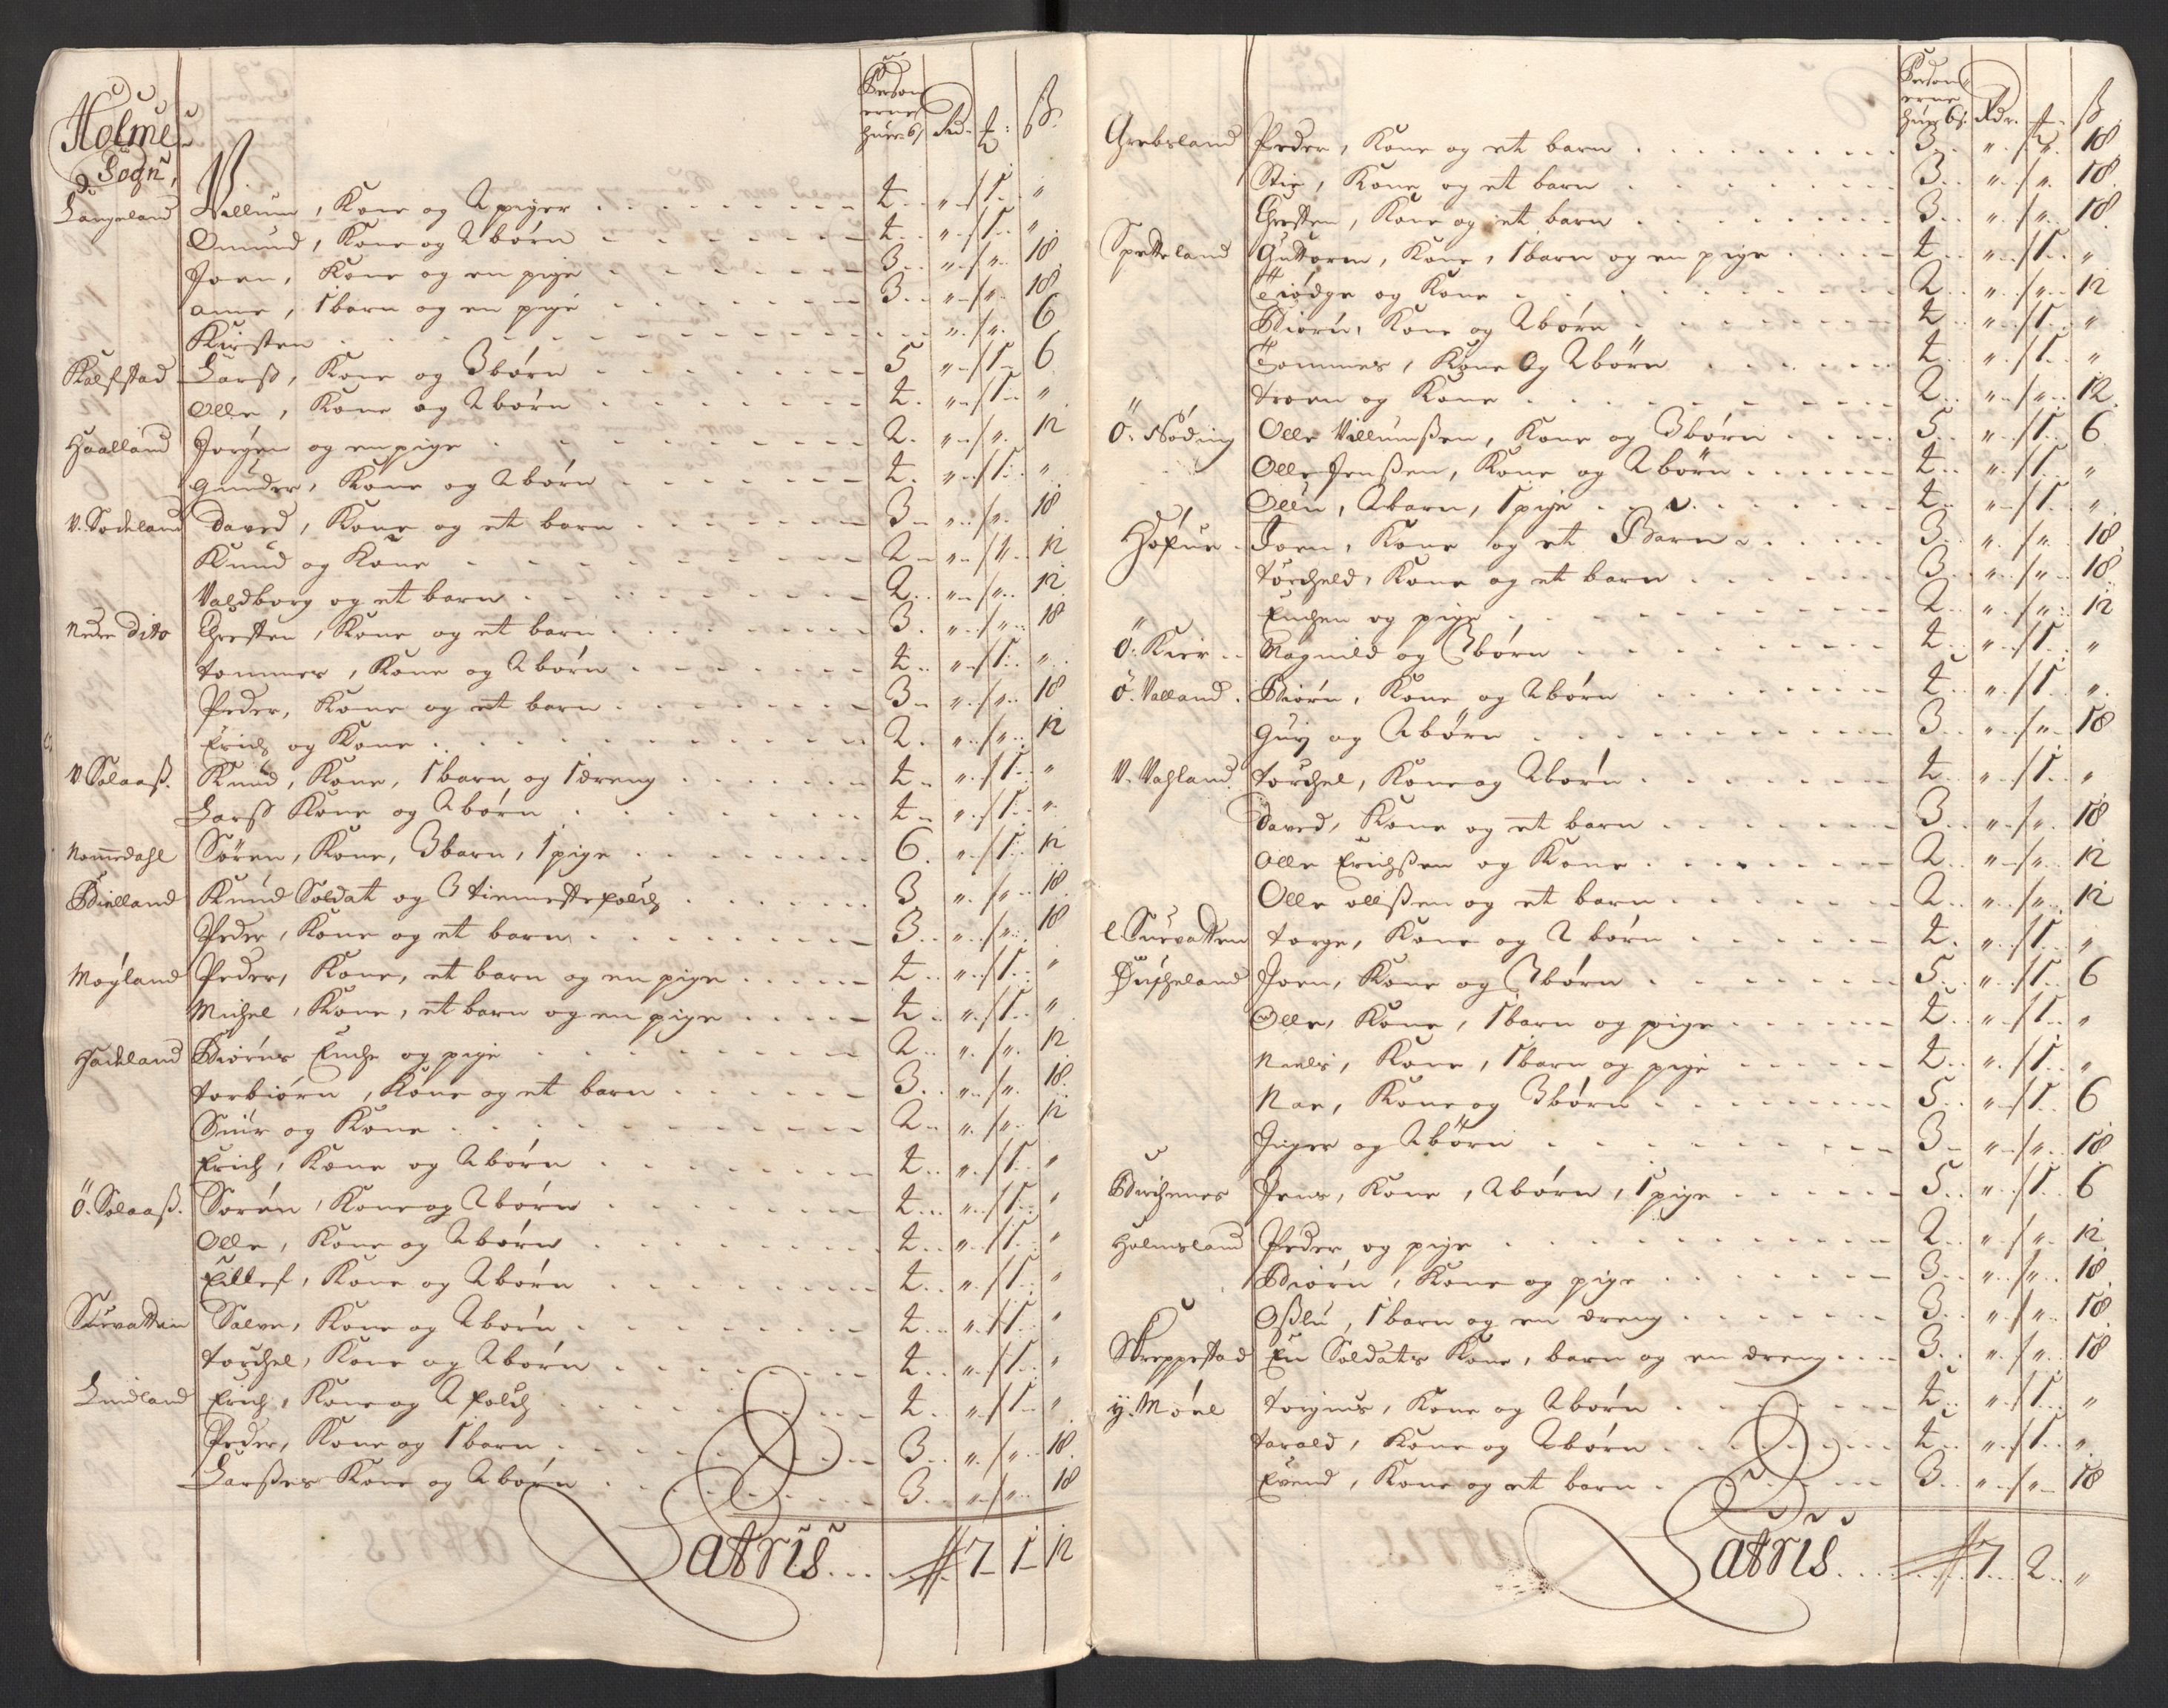 Holme
Sogn,
Person
erne
huus b/ Rd. t: ß.
Langeland Villum, Kone og 2 piger 4 „ 1 „
Omund, Kone og 2 börn 4 „ 1 „
Joen, Kone og en pige 3 „ „ 18
ane, 1 barn og en pige 3 „ „ 18
Kirsten „ „ 6
Kalfstad Larss, Kone og 3 börn 5 „ 1 6
Olle, Kone og 2 börn 4 „ 1 „
Haalland Jorgen og en pige 2 „ „ 12
Gunder, Kone og 2 börn 4 „ 1 „
V. Sodeland David, Kone og et barn 3 „ „ 18
Knud og Kone 2 „ „ 12
Valdborg og et barn 2 „ „ 12
Nedre dito Chresten, Kone og et barn 3 „ „ 18
tommes, Kone og 2 börn 4 „ 1 „
Peder, Kone og et barn 3 „ „ 18
Erich og Kone 2 „ „ 12
V. Solaaß. Knud, Kone, 1 barn og 1 dreng 4 „ 1 „
Larss Kone og 2 börn 4 „ 1 „
Nomedahl Sören, Kone, 3 barn, 1 pige 6 „ 1 12
Bielland Knud Soldat og 3 tienestefolch 3 „ „ 18
Peder, Kone og et barn 3 „ „ 18
Moyland Peder, Kone, et barn og en pige 4 „ 1 „
Michel, Kone, et barn og en pige 4 „ 1 „
Hachland Biörns Enche og pige 2 „ „ 12
torbiörn, Kone og et barn 3 „ „ 18
Siur og Kone 2 „ „ 12
Erich, Kone og 2 börn 4 „ 1 „
Ö. Solaaß. Sorén, Kone og 2 börn 4 „ 1 „
Olle, Kone og 2 börn 4 „ 1 „
Eillef, Kone og 2 börn 4 „ 1 „
Survatten Salve, Kone og 2 börn 4 „ 1 „
torchel, Kone og 2 börn 4 „ 1 „
Lindland Erich, Kone og 2 folch 4 „ 1 „
Peder, Kone og 1 barn 3 „ „ 18
Larsses Kone og 2 börn 3 „ „ 18
Latris 7 1 12
Person
erne
huus b/. Rdr. t ß
Grebsland Peder, Kone og et barn 3 „ „ 18
Stie, Kone og et barn 3 „ „ 18
Chresten, Kone og et barn 3 „ „ 18
Spetteland Guttorm, Kone, 1 barn og en pige 4 „ 1 „
Tiödge og Kone 2 „ „ 12
Biörn, Kone og 2 börn 4 „ 1 „
Tommes, Kone og 2 börn 4 „ 1 „
troen og Kone 2 „ „ 12
Ö. Nöding Olle Villumßen, Kone og 3 börn 5 „ 1 6
Olle Jenßen, Kone og 2 börn 4 „ 1 „
Ollu, 2 barn, 1 pige 4 „ 1 „
Joen, Kone og et Barn 3 „ „ 18
torcheld, Kone og et barn 3 „ „ 18
Enchen og pige 2 „ „ 12
Ö. Kier Magnild og 3 börn 4 „ 1 „
Ö. Valland Biörn, Kone og 2 börn 4 „ 1 „
Gurj og 2 börn 3 „ „ 18
V. Vahland torchel, Kone og 2 börn 4 „ 1 „
David, Kone og et barn 3 „ „ 18
Olle Erichßen og Kone 2 „ „ 12
Olle ollßen og et barn 2 „ „ 12
l. Survatten torge, Kone og 2 börn 4 „ 1 „
Joen, Kone og 3 börn 5 „ 1 6
Olle, Kone, 1 barn og pige 4 „ 1 „
Niels, Kone, 1 barn og pige 4 „ 1 „
Kone og 3 börn 5 „ 1 6
Inger og 2 börn 3 „ „ 18
Birchenes Jens, Kone, 2 börn, 1 pige 5 „ 1 6
Holmsland Peder og pige 2 „ „ 12
Biörn, Kone og pige 3 „ „ 18
Oßlu, 1 barn og en dreng 3 „ „ 18
Skreppestad En Soldats Kone, barn og en dreng 3 „ „ 18
torgius, Kone og 2 börn 4 „ 1 „
tarald, Kone og 2 börn 4 „ 1 „
Evend, Kone og et barn 3 „ „ 18
Latris 7 2 „